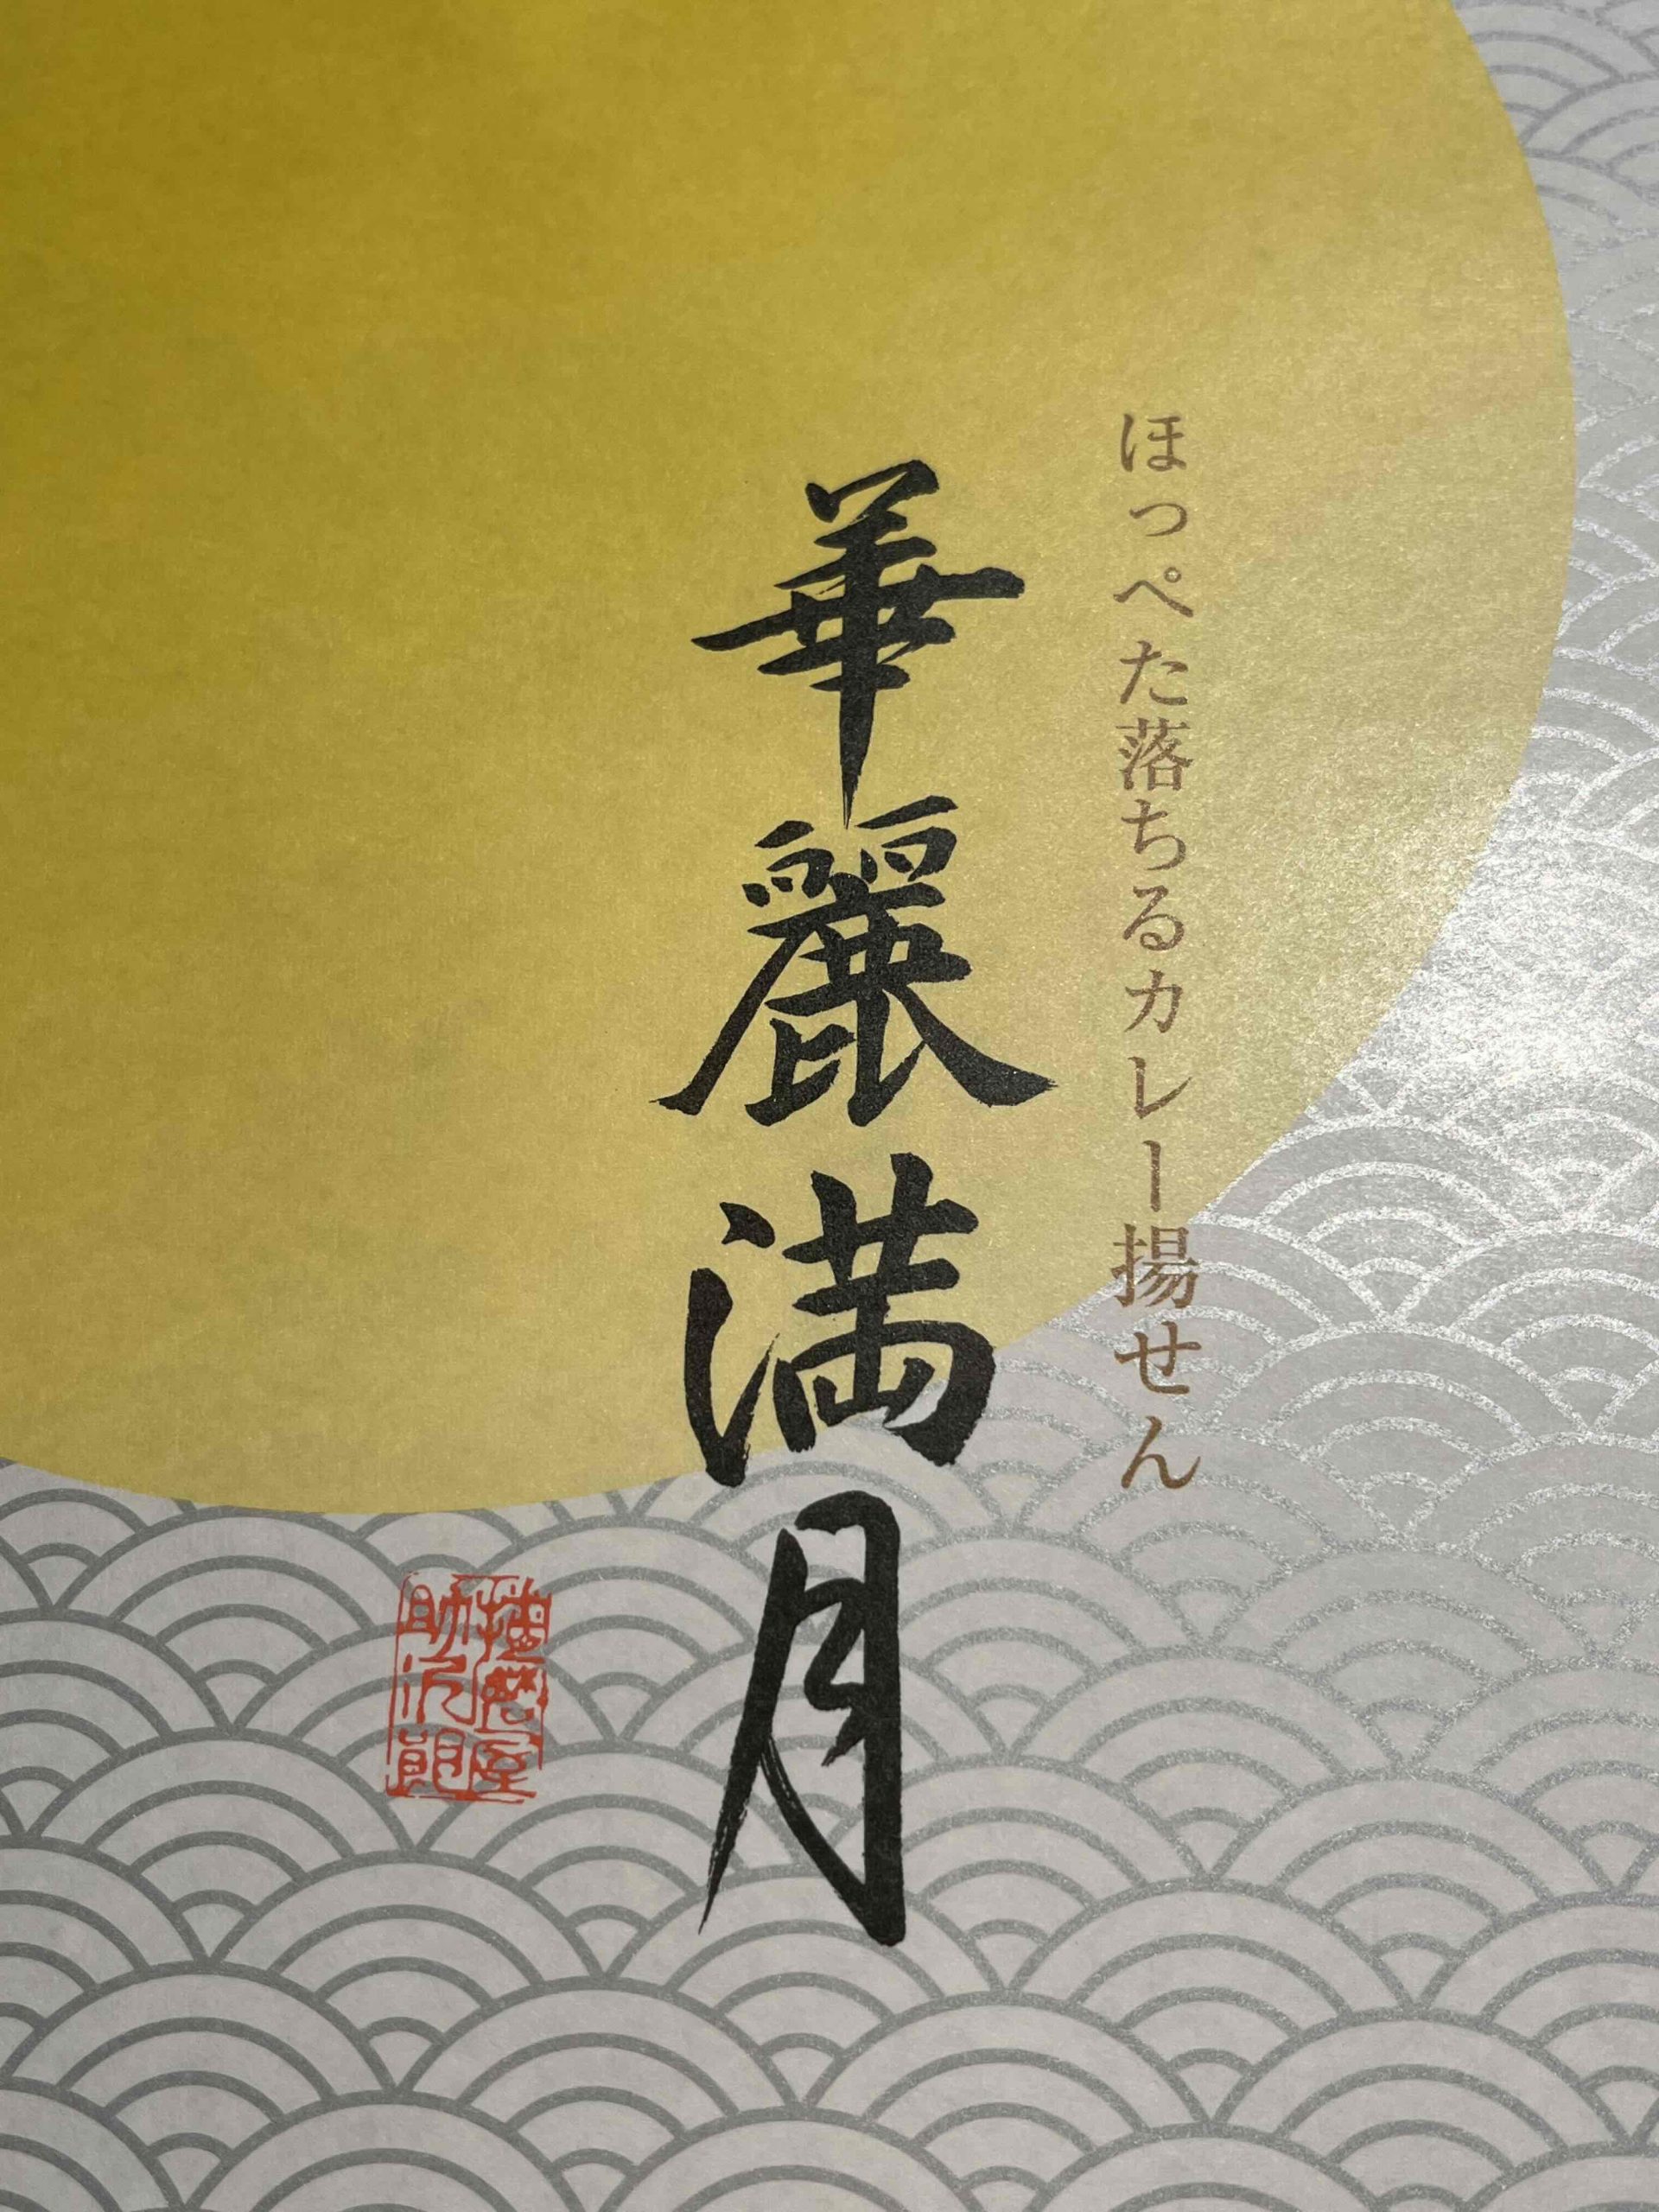 ほっぺた落ちるカレー揚せん
華麗満月
播磨屋
助次郎